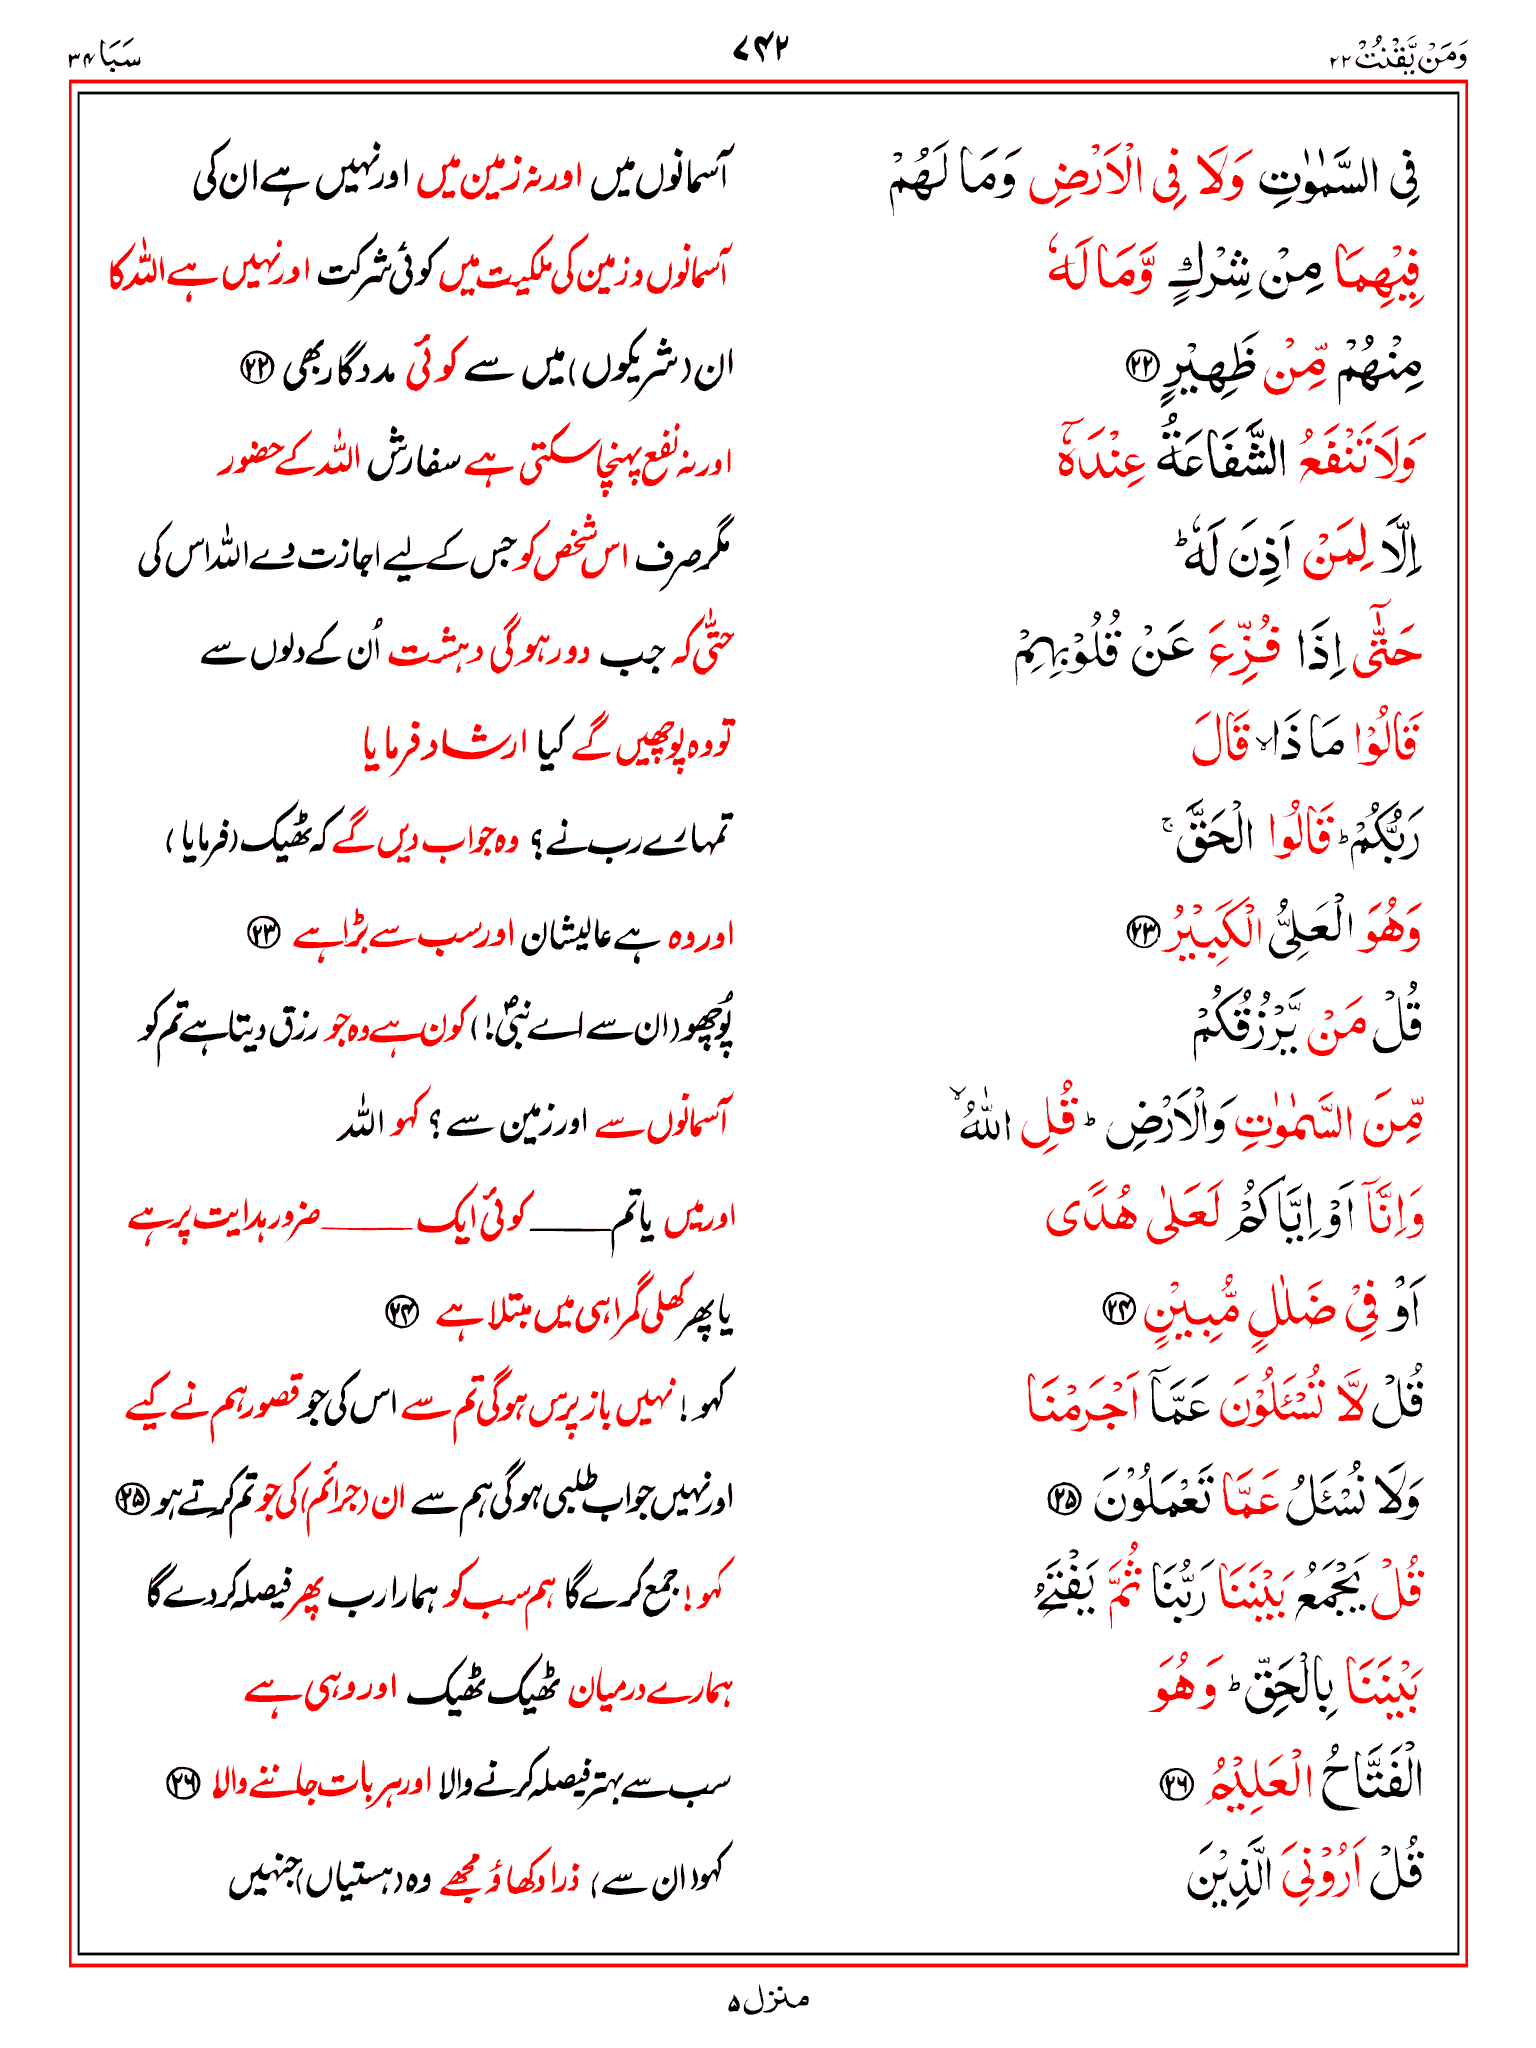 وَمَنْ يَّقْنُتْ ۲۲
۷۴۲
سَبَا ۳۴
فِی السَّمٰوٰتِ وَلَا فِی الْاَرْضِ وَمَا لَهُمْ
آسمانوں میں اور نہ زمین میں اور نہیں ہے ان کی
فِیْهِمَا مِنْ شِرْكٍ وَّمَا لَهٗ
آسمانوں و زمین کی ملکیت میں کوئی شرکت اور نہیں ہے اللہ کا
مِنْهُمْ مِّنْ ظَهِیْرٍ ۲۲
ان (شریکوں) میں سے کوئی مددگار بھی ۲۲
وَلَا تَنْفَعُ الشَّفَاعَةُ عِنْدَهٗۤ
اور نہ نفع پہنچا سکتی ہے سفارش اللہ کے حضور
اِلَّا لِمَنْ اَذِنَ لَهٗ ؕ
مگر صرف اس شخص کو جس کے لیے اجازت دے اللہ اس کی
حَتّٰۤی اِذَا فُزِّعَ عَنْ قُلُوْبِهِمْ
حتّٰی کہ جب دور ہوگی دہشت اُن کے دلوں سے
قَالُوْا مَاذَا ۙ قَالَ
تو وہ پوچھیں گے کیا ارشاد فرمایا
رَبُّكُمْ ؕ قَالُوا الْحَقَّ ۚ
تمہارے رب نے؟ وہ جواب دیں گے کہ ٹھیک (فرمایا)
وَهُوَ الْعَلِیُّ الْكَبِیْرُ ۲۳
اور وہ ہے عالیشان اور سب سے بڑا ہے ۲۳
قُلْ مَنْ یَّرْزُقُكُمْ
پُوچھو (ان سے اے نبیؐ!) کون ہے وہ جو رزق دیتا ہے تم کو
مِّنَ السَّمٰوٰتِ وَالْاَرْضِ ؕ قُلِ اللّٰهُ ۙ
آسمانوں سے اور زمین سے؟ کہو اللہ
وَاِنَّاۤ اَوْ اِیَّاكُمْ لَعَلٰی هُدًی
اور میں یا تم ____ کوئی ایک ____ ضرور ہدایت پر ہے
اَوْ فِیْ ضَلٰلٍ مُّبِیْنٍ ۲۴
یا پھر کھلی گمراہی میں مبتلا ہے ۲۴
قُلْ لَّا تُسْـَٔلُوْنَ عَمَّاۤ اَجْرَمْنَا
کہو! نہیں باز پرس ہوگی تم سے اس کی جو قصور ہم نے کیے
وَلَا نُسْـَٔلُ عَمَّا تَعْمَلُوْنَ ۲۵
اور نہیں جواب طلبی ہوگی ہم سے ان (جرائم) کی جو تم کرتے ہو ۲۵
قُلْ یَجْمَعُ بَیْنَنَا رَبُّنَا ثُمَّ یَفْتَحُ
کہو! جمع کرے گا ہم سب کو ہمارا رب پھر فیصلہ کردے گا
بَیْنَنَا بِالْحَقِّ ؕ وَهُوَ
ہمارے درمیان ٹھیک ٹھیک اور وہی ہے
الْفَتَّاحُ الْعَلِیْمُ ۲۶
سب سے بہتر فیصلہ کرنے والا اور ہر بات جاننے والا ۲۶
قُلْ اَرُوْنِیَ الَّذِیْنَ
کہو (ان سے) ذرا دکھاؤ مجھے وہ (ہستیاں) جنہیں
منزل ۵